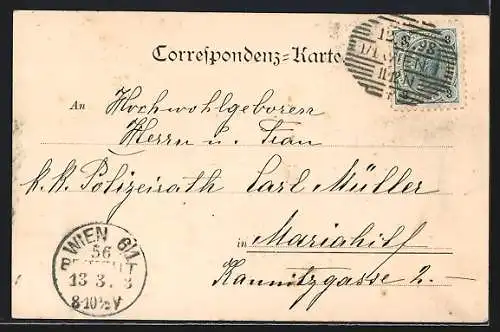 Correspondenz=Karte
An Hochwohlgeboren
Herrn u. Frau
k. k. Polizeirath Carl Müller
in Mariahilf
Kaunitzgasse 2.—
WIEN 6/1
56
13 3. 8
8-10½V